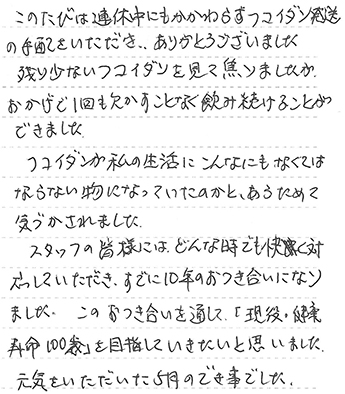 このたびは連休中にもかかわらずフコイダン発送
の手配をいただき、ありがとうございました
残り少ないフコイダンを見て焦りましたが
おかげで1回も欠かすことなく飲み続けることが
できました
フコイダンが私の生活にこんなにもなくては
ならない物になっていたのかと、あらためて
気づかされました。
スタッフの皆様には、どんな時でも快く対
応していただき、すでに10年のおつき合いになり
ました。このおつき合いを通して、「現役・健康
寿命100歳」を目指していきたいと思いました。
元気をいただいた5月のでき事でした。